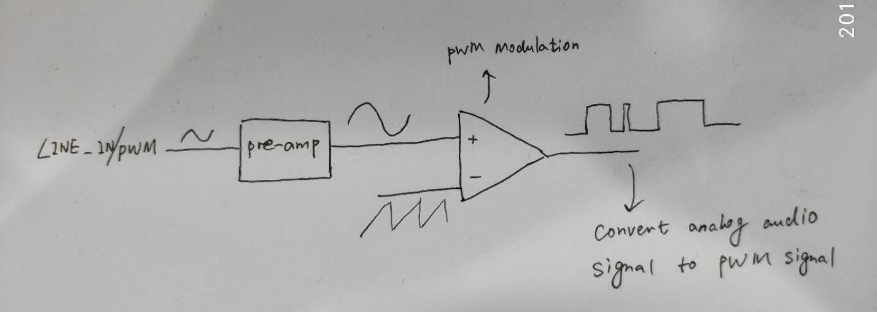 201
pwm modulation
LINE_IN/PWM
pre-amp
+
-
Convert analog audio
signal to PWM signal